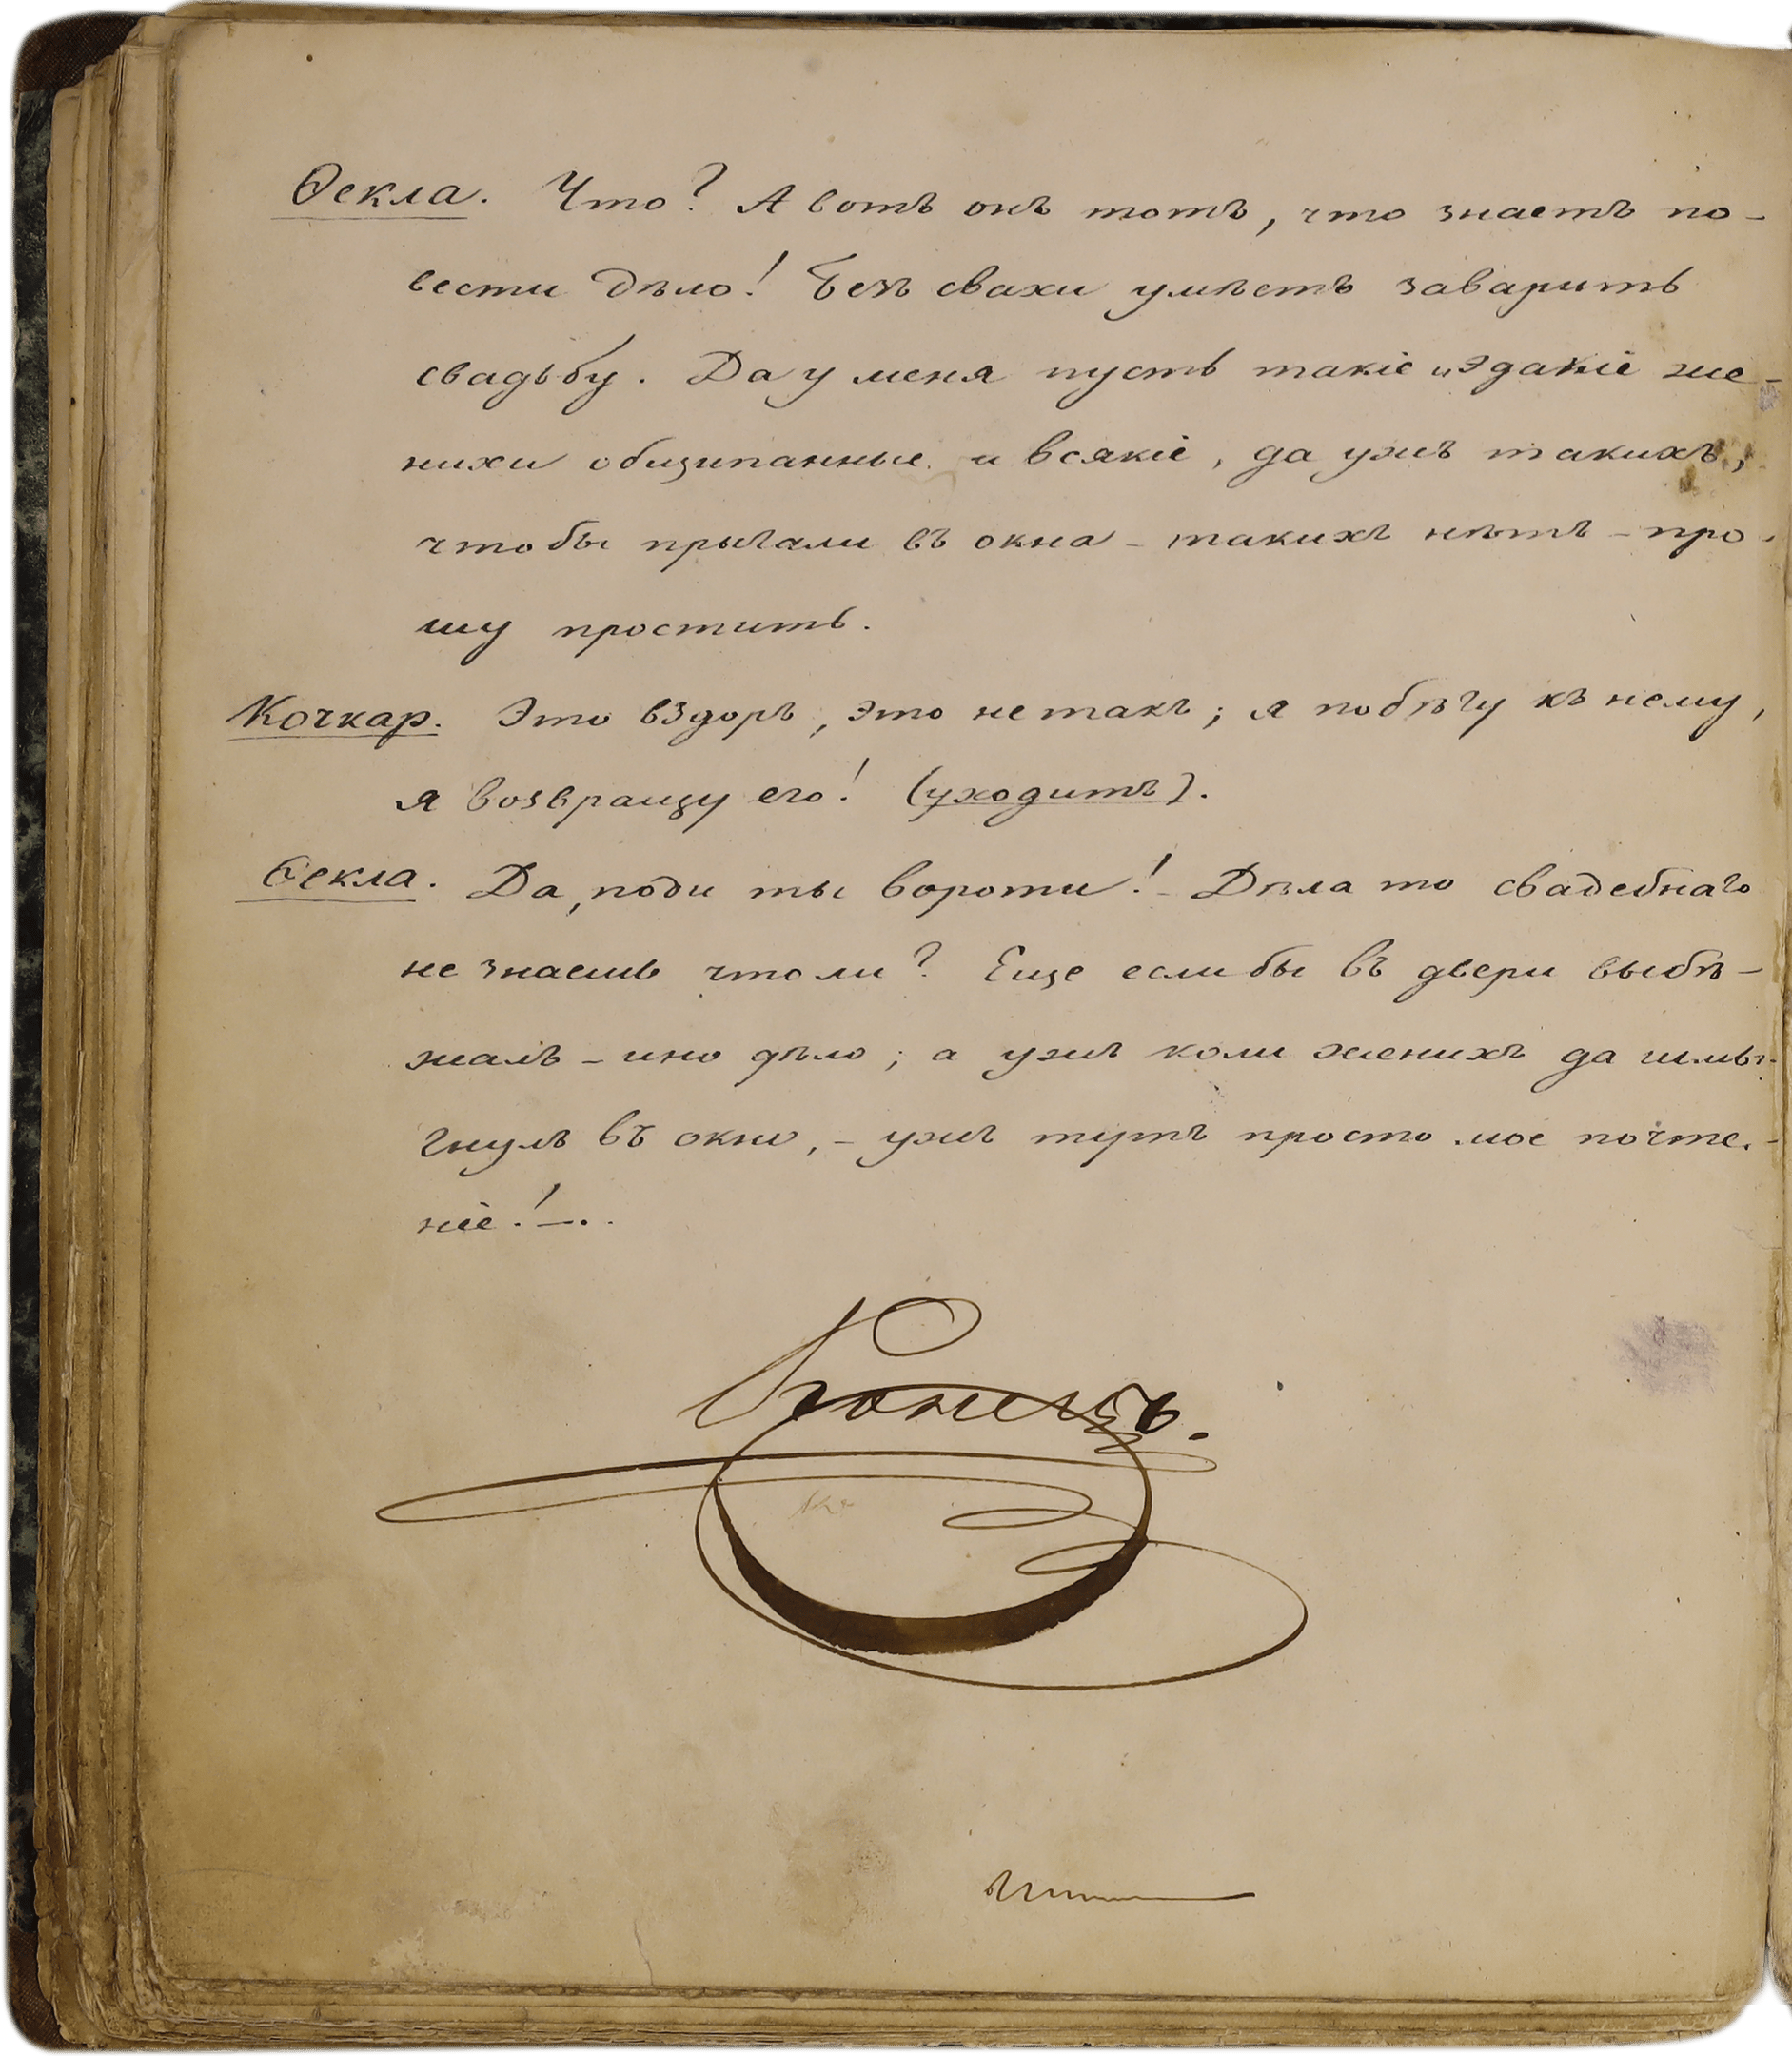 Ѳекла. Что? А вотъ онъ тотъ, что знаетъ по-
вести дѣло! Безъ свахи умѣетъ заварить
свадьбу. Да у меня пусть такіе и эдакіе же-
нихи общипанные и всякіе, да ужъ такихъ,
чтобы прыгали въ окна - такихъ нѣтъ - про-
шу простить.
Кочкар. Это вздоръ, это не такъ; я побѣгу къ нему,
я возвращу его! (уходитъ).
Ѳекла. Да, поди ты вороти! - Дѣла то свадебнаго
не знаешь что ли? Еще если бы въ двери выбѣ-
жалъ - ино дѣло; а ужъ коли женихъ да шмы-
гнулъ въ окно, - ужъ тутъ просто мое почте-
ніе! -..
Конецъ.